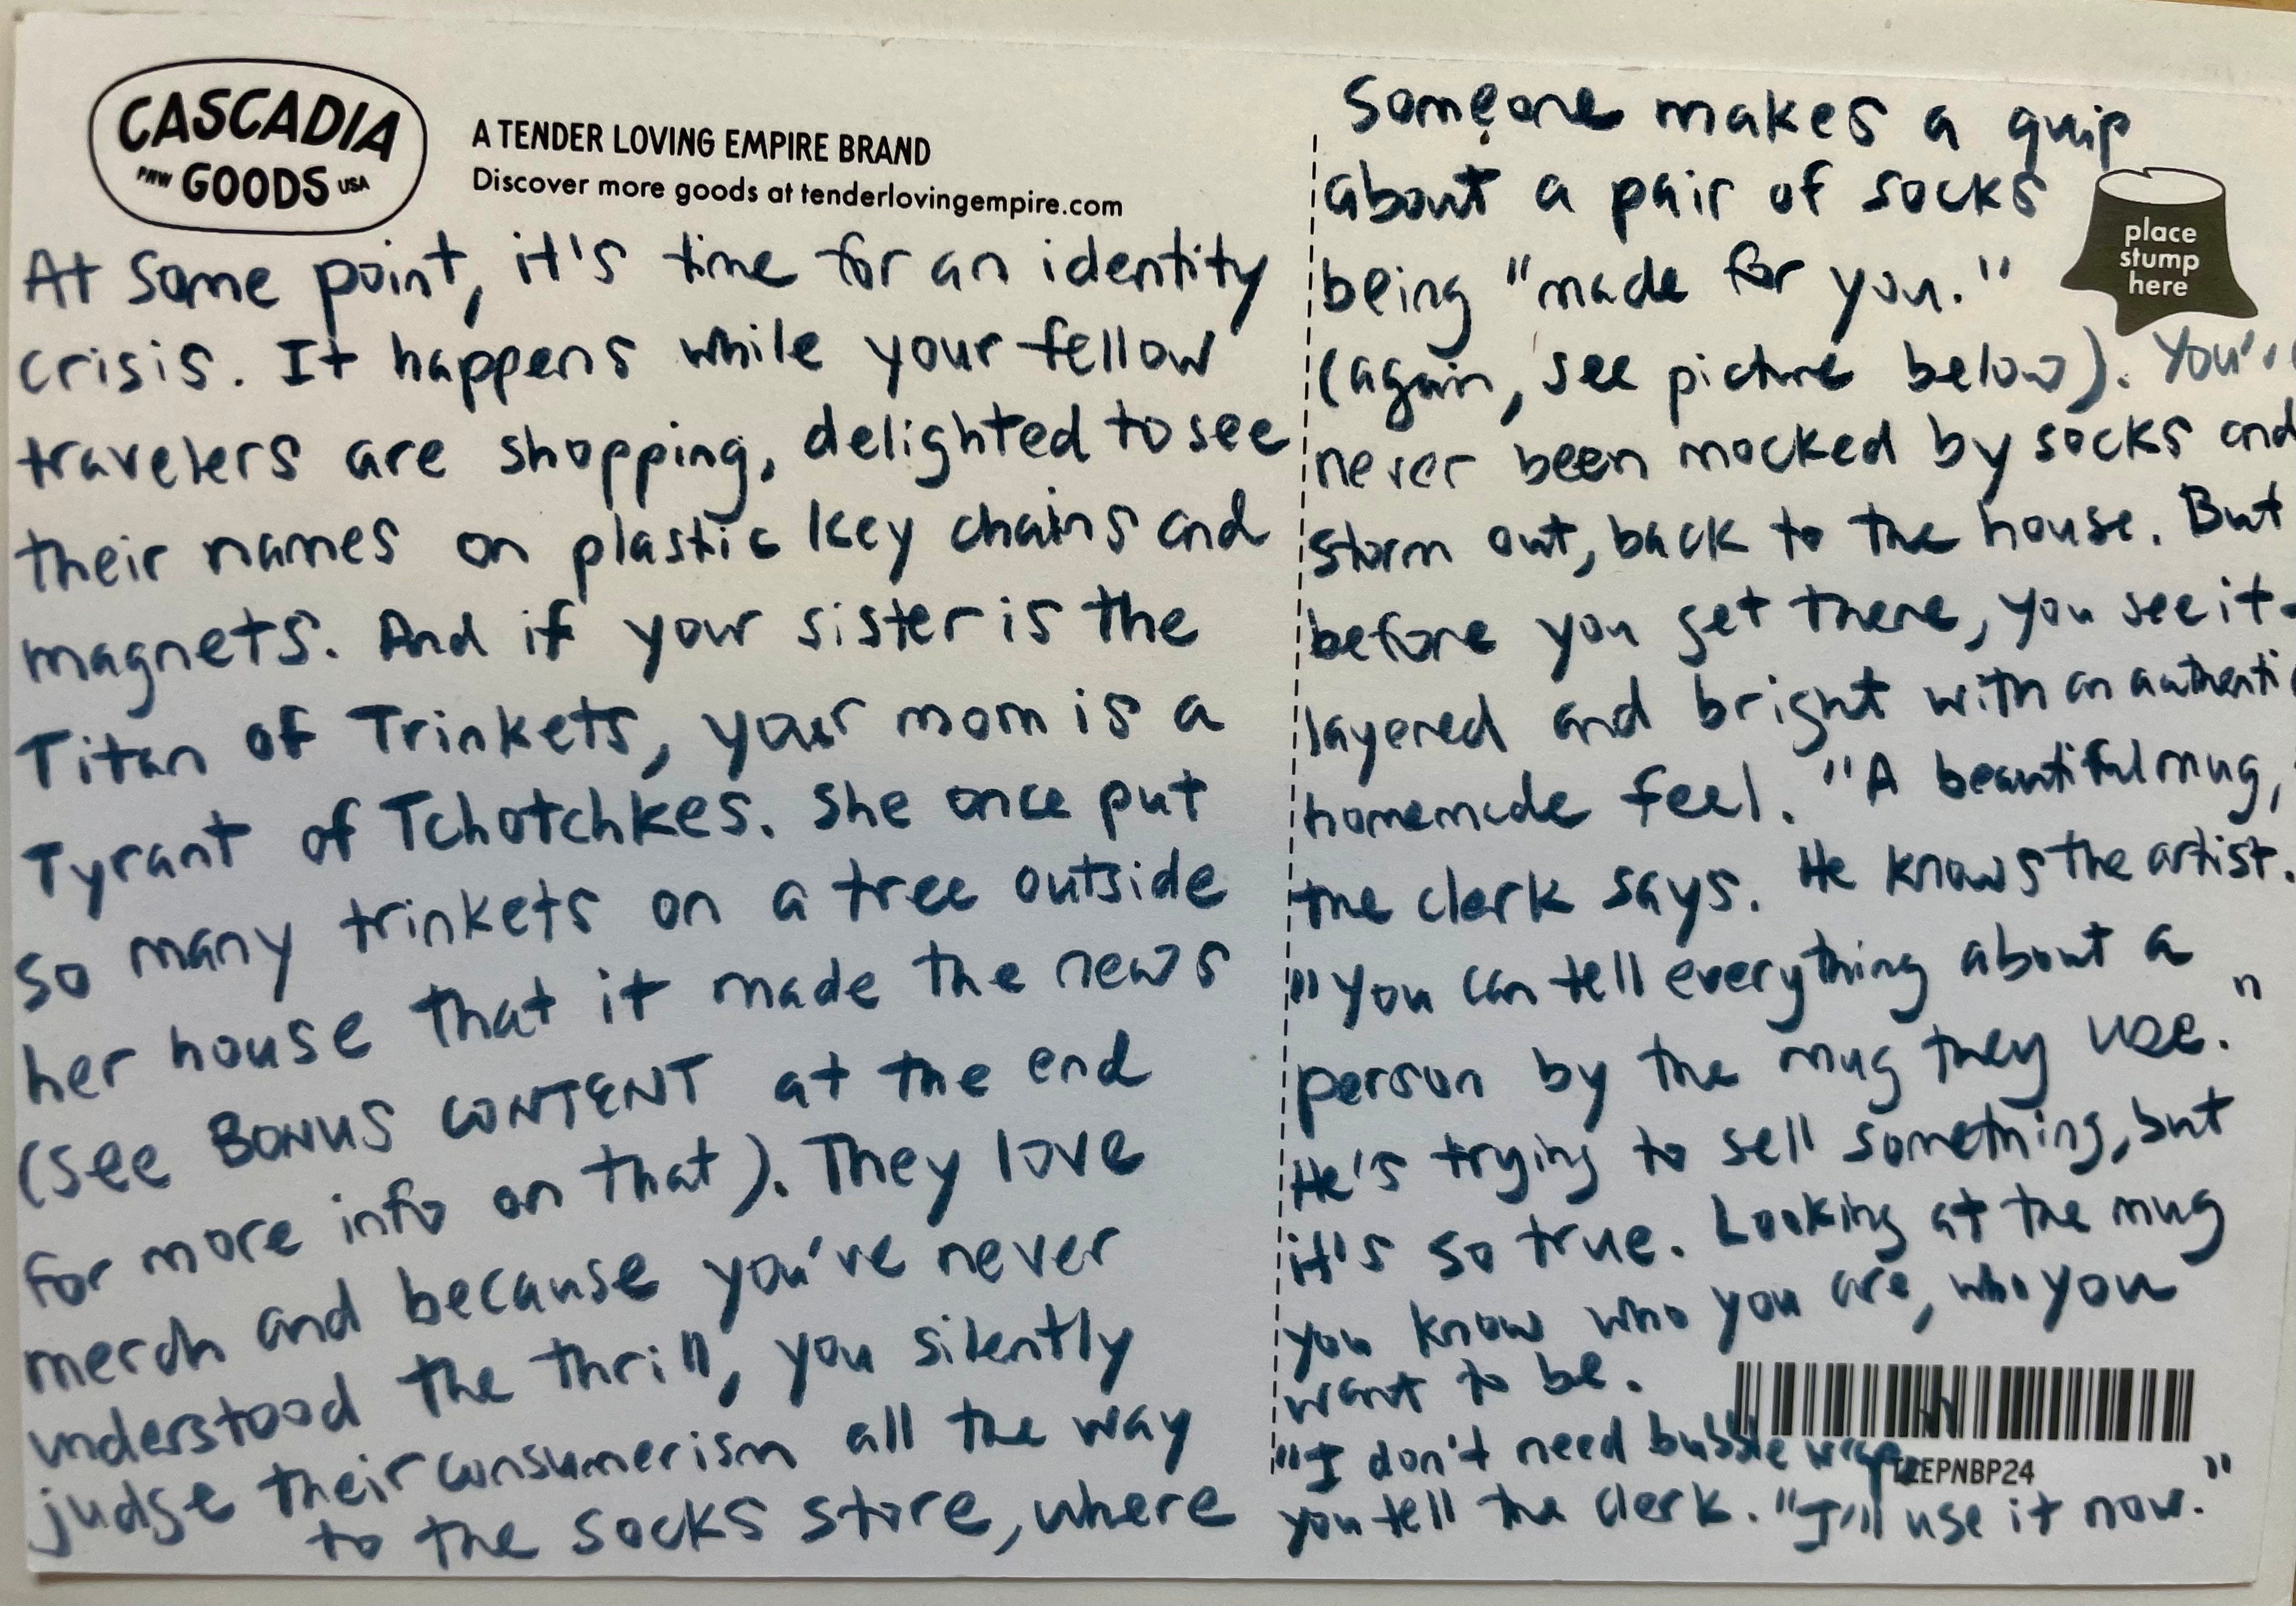 CASCADIA
PNW GOODS USA
A TENDER LOVING EMPIRE BRAND
Discover more goods at tenderlovingempire.com
At some point, it's time for an identity
crisis. It happens while your fellow
travelers are shopping, delighted to see
their names on plastic key chains and
magnets. And if your sister is the
Titan of Trinkets, your mom is a
Tyrant of Tchotchkes. She once put
so many trinkets on a tree outside
her house that it made the news
(see BONUS CONTENT at the end
for more info on that). They love
merch and because you've never
understood the thrill, you silently
judge their consumerism all the way
to the socks store, where
Someone makes a quip
about a pair of socks
being "made for you."
(again, see picture below). You've
never been mocked by socks and
storm out, back to the house. But
before you get there, you see it-
layered and bright with an authentic
homemade feel. "A beautiful mug,"
the clerk says. He knows the artist.
"You can tell everything about a
person by the mug they use."
He's trying to sell something, but
it's so true. Looking at the mug
you know who you are, who you
want to be.
"I don't need bubble wrap,
you tell the clerk. "I'll use it now."
place
stump
here
TLEPNBP24